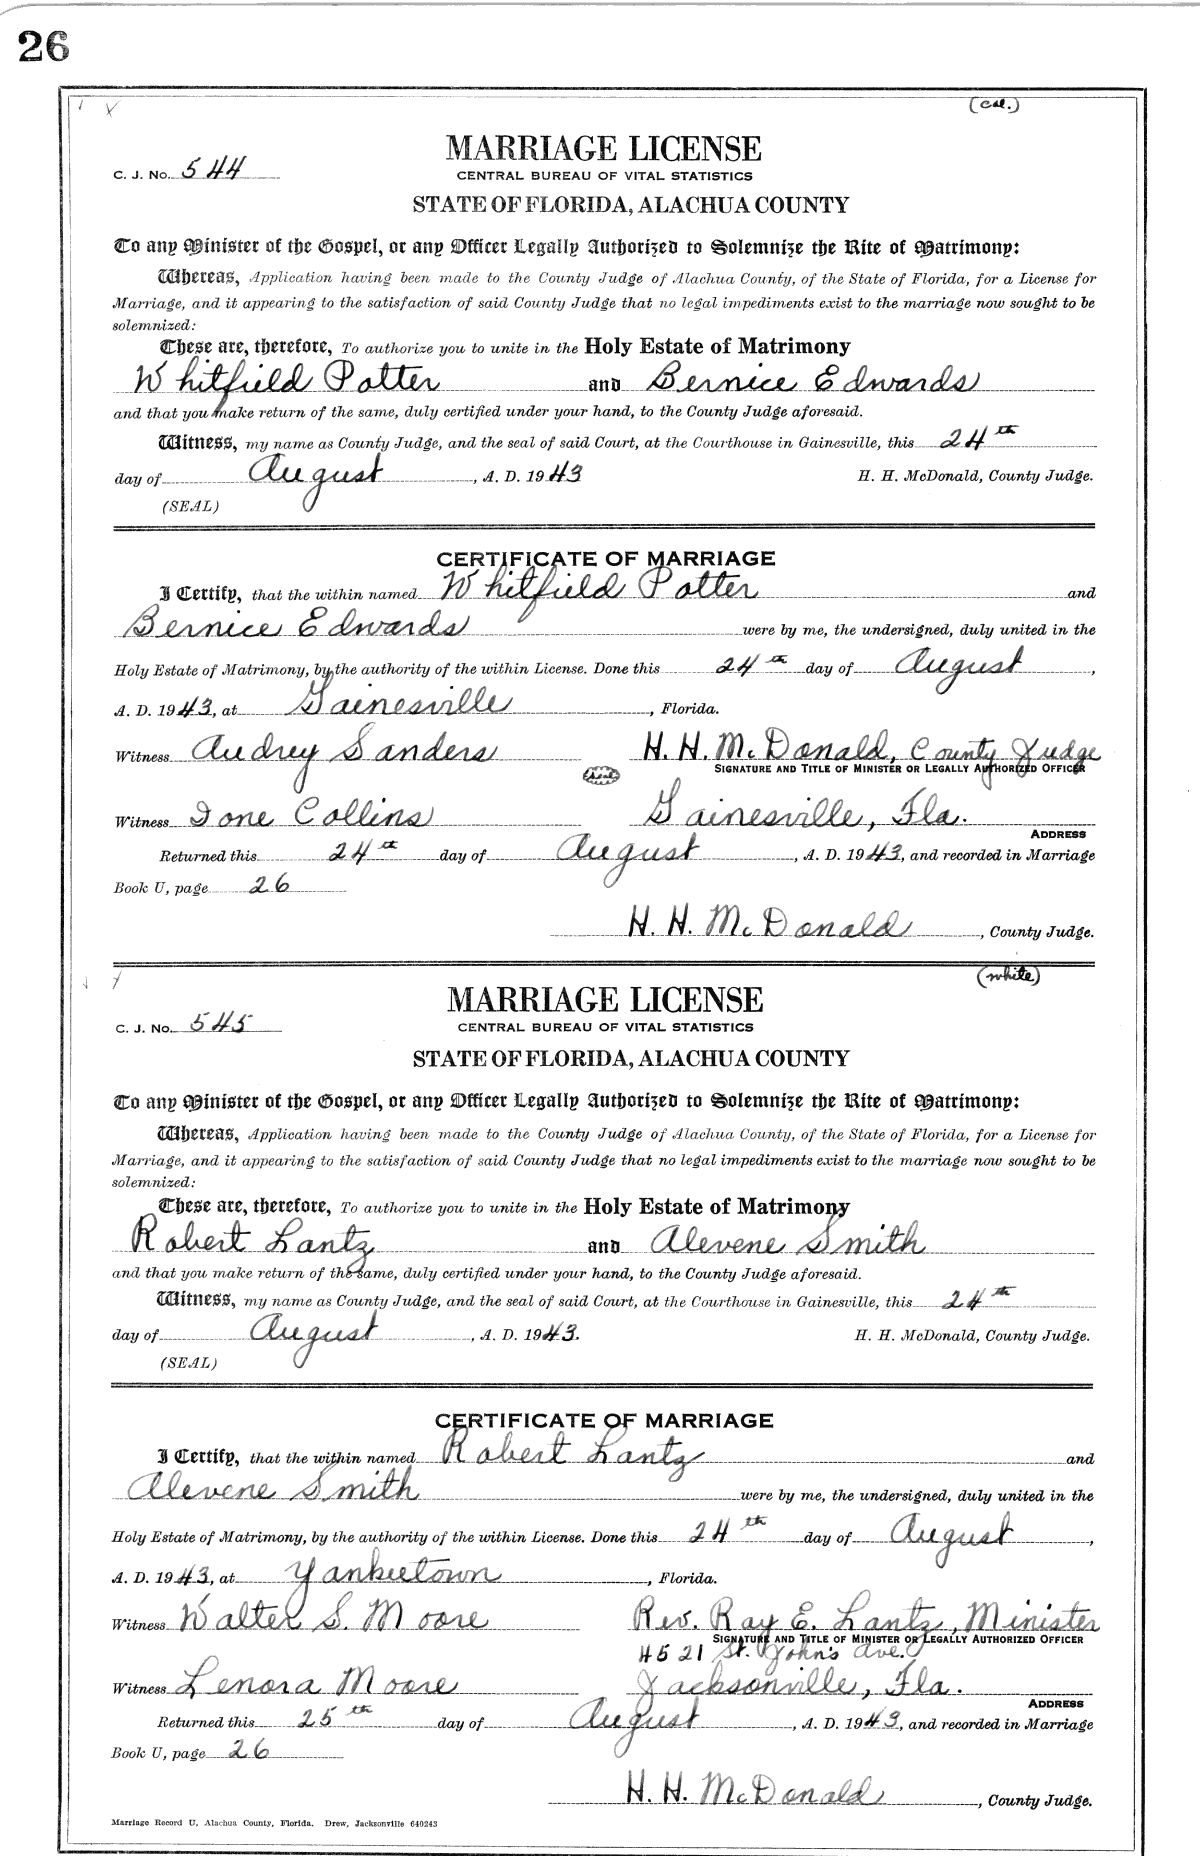 26
(Col.)
MARRIAGE LICENSE
C. J. No. 544
CENTRAL BUREAU OF VITAL STATISTICS
STATE OF FLORIDA, ALACHUA COUNTY
To any Minister of the Gospel, or any Officer Legally Authorized to Solemnize the Rite of Matrimony:
Whereas, Application having been made to the County Judge of Alachua County, of the State of Florida, for a License for
Marriage, and it appearing to the satisfaction of said County Judge that no legal impediments exist to the marriage now sought to be
solemnized:
These are, therefore, To authorize you to unite in the Holy Estate of Matrimony
Whitfield Potter and Bernice Edwards
and that you make return of the same, duly certified under your hand, to the County Judge aforesaid.
Witness, my name as County Judge, and the seal of said Court, at the Courthouse in Gainesville, this 24th
day of August, A. D. 1943 H. H. McDonald, County Judge.
(SEAL)
CERTIFICATE OF MARRIAGE
I Certify, that the within named Whitfield Potter and
Bernice Edwards were by me, the undersigned, duly united in the
Holy Estate of Matrimony, by the authority of the within License. Done this 24th day of August,
A. D. 1943, at Gainesville, Florida.
Witness Audrey Sanders H. H. McDonald, County Judge
(seal) SIGNATURE AND TITLE OF MINISTER OR LEGALLY AUTHORIZED OFFICER
Witness Ione Collins Gainesville, Fla.
ADDRESS
Returned this 24th day of August, A. D. 1943, and recorded in Marriage
Book U, page 26
H. H. McDonald, County Judge.
(white)
MARRIAGE LICENSE
C. J. No. 545
CENTRAL BUREAU OF VITAL STATISTICS
STATE OF FLORIDA, ALACHUA COUNTY
To any Minister of the Gospel, or any Officer Legally Authorized to Solemnize the Rite of Matrimony:
Whereas, Application having been made to the County Judge of Alachua County, of the State of Florida, for a License for
Marriage, and it appearing to the satisfaction of said County Judge that no legal impediments exist to the marriage now sought to be
solemnized:
These are, therefore, To authorize you to unite in the Holy Estate of Matrimony
Robert Lantz and Alevene Smith
and that you make return of the same, duly certified under your hand, to the County Judge aforesaid.
Witness, my name as County Judge, and the seal of said Court, at the Courthouse in Gainesville, this 24th
day of August, A. D. 1943. H. H. McDonald, County Judge.
(SEAL)
CERTIFICATE OF MARRIAGE
I Certify, that the within named Robert Lantz and
Alevene Smith were by me, the undersigned, duly united in the
Holy Estate of Matrimony, by the authority of the within License. Done this 24th day of August,
A. D. 1943, at Yankeetown, Florida.
Witness Walter S. Moore Rev. Ray E. Lantz, Minister
SIGNATURE AND TITLE OF MINISTER OR LEGALLY AUTHORIZED OFFICER
4521 St. John's Ave.
Witness Lenora Moore Jacksonville, Fla.
ADDRESS
Returned this 25th day of August, A. D. 1943, and recorded in Marriage
Book U, page 26
H. H. McDonald, County Judge.
Marriage Record U, Alachua County, Florida. Drew, Jacksonville 640243